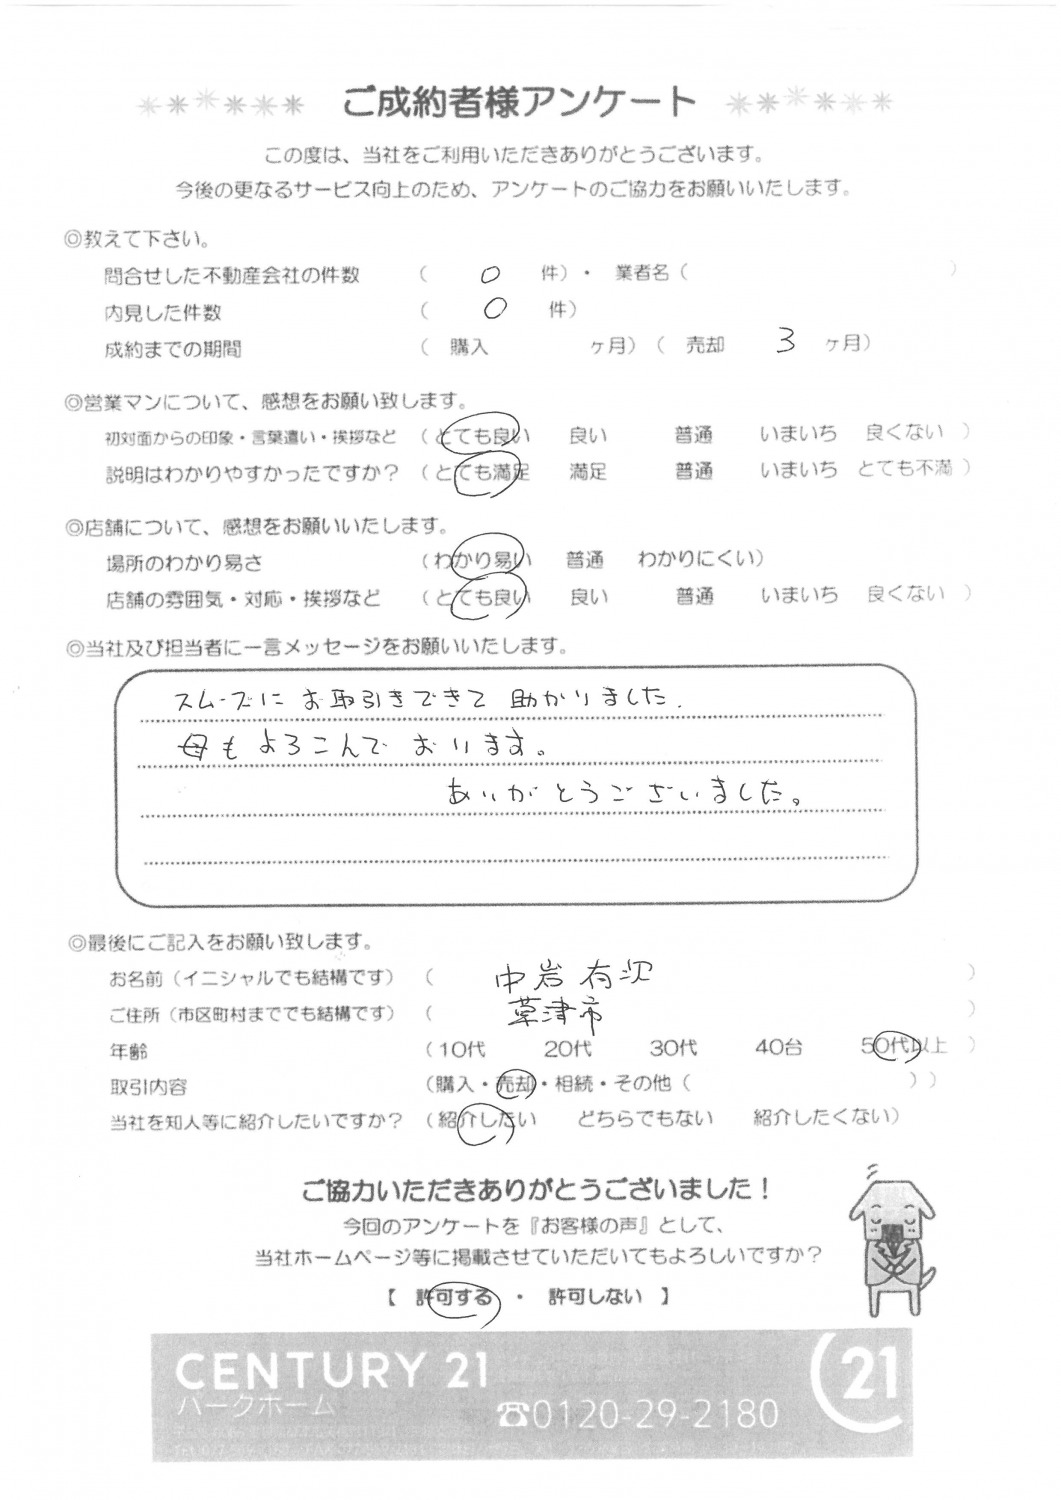 ご成約者様アンケート
この度は、当社をご利用いただきありがとうございます。
今後の更なるサービス向上のため、アンケートのご協力をお願いいたします。
◎教えて下さい。
問合せした不動産会社の件数 ( 0 件)・ 業者名 ( )
内見した件数 ( 0 件)
成約までの期間 ( 購入 ヶ月) ( 売却 3 ヶ月)
◎営業マンについて、感想をお願い致します。
初対面からの印象・言葉遣い・挨拶など (とても良い 良い 普通 いまいち 良くない )
説明はわかりやすかったですか? (とても満足 満足 普通 いまいち とても不満 )
◎店舗について、感想をお願いいたします。
場所のわかり易さ (わかり易い 普通 わかりにくい)
店舗の雰囲気・対応・挨拶など (とても良い 良い 普通 いまいち 良くない )
◎当社及び担当者に一言メッセージをお願いいたします。
スムーズに お取引きできて 助かりました.
母も よろこんで おります。
ありがとうございました。
◎最後にご記入をお願い致します。
お名前 (イニシャルでも結構です) ( 中岩 有沢 )
ご住所 (市区町村まででも結構です) ( 草津市 )
年齢 (10代 20代 30代 40台 50代以上 )
取引内容 (購入・売却・相続・その他 ( ) )
当社を知人等に紹介したいですか? (紹介したい どちらでもない 紹介したくない)
ご協力いただきありがとうございました!
今回のアンケートを『お客様の声』として、
当社ホームページ等に掲載させていただいてもよろしいですか?
【 許可する ・ 許可しない 】
CENTURY 21
21
パークホーム
☎0120-29-2180